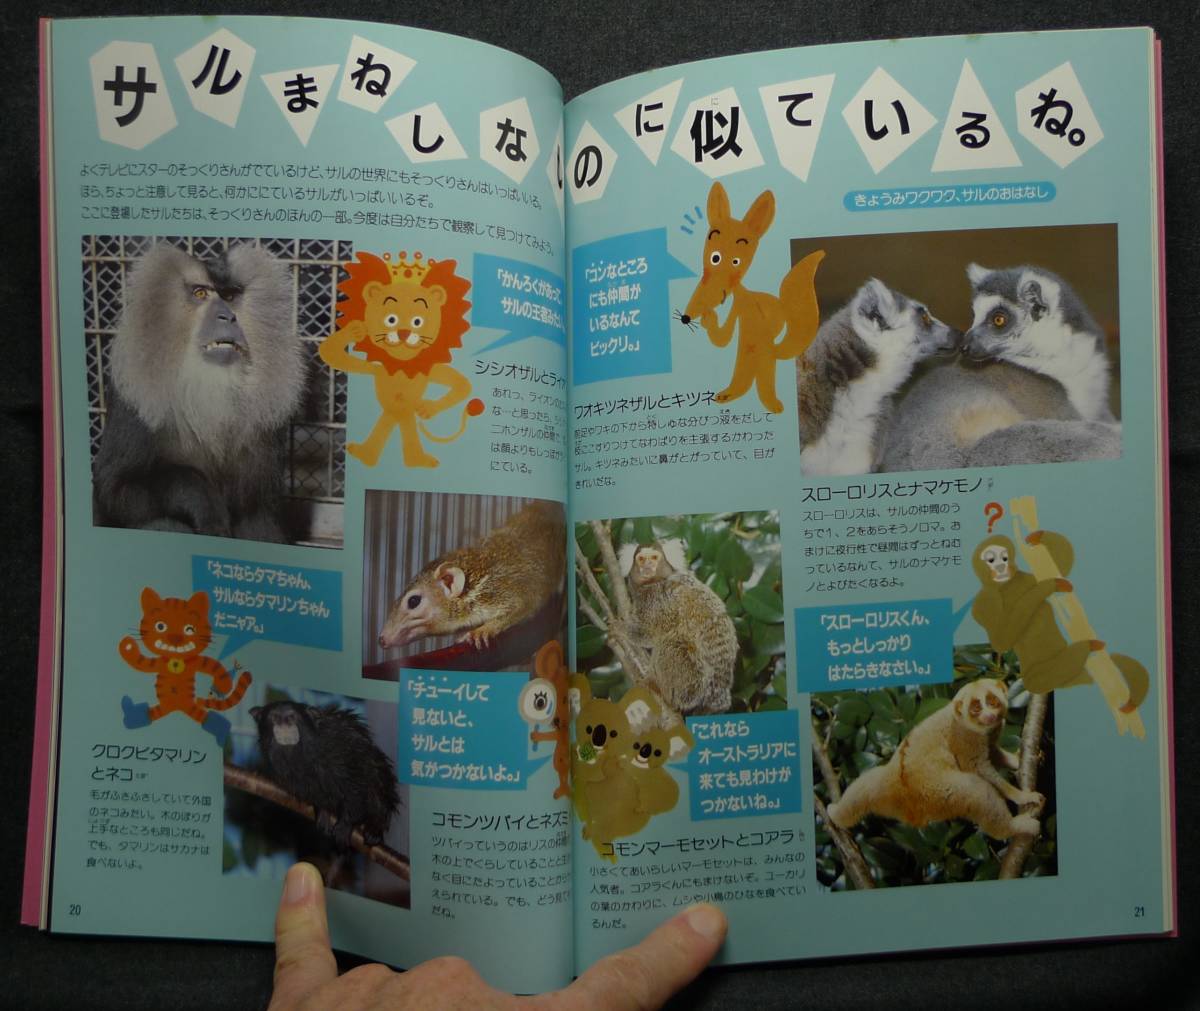 サルまねしないのに似ているね。
に
よくテレビにスターのそっくりさんがでているけど、サルの世界にもそっくりさんはいっぱいいる。
ほら、ちょっと注意して見ると、何かににているサルがいっぱいいるぞ。
ここに登場したサルたちは、そっくりさんのほんの一部。今度は自分たちで観察して見つけてみよう。
「かんろくがあって、
サルの王者みたい。
シシオザルとライ
あれっ、ライオンの
な…と思ったら、
ニホンザルの仲間で、
は顔よりもしっぽが
にている。
「ネコならタマちゃん、
サルならタマリンちゃん
だニャア。」
クロクビタマリン
とネコ
毛がふさふさしていて外国
のネコみたい。木のぼりが
上手なところも同じだね。
でも、タマリンはサカナは
食べないよ。
「チューイして
見ないと、
サルとは
気がつかないよ。」
コモンツパイとネズミ
ツパイっていうのはリスの仲間
木の上でくらしていることと
なく目にたよっていることから
えられている。でも、どう見て
だね。
20
きょうみワクワク、サルのおはなし
「コンなところ
にも仲間が
いるなんて
ビックリ。」
ワオキツネザルとキツネ
前足やワキの下から特しゅな分ぴつ液をだして
枝にこすりつけてなわばりを主張するかわった
サル。キツネみたいに鼻がとがっていて、目が
きれいだな。
スローロリスとナマケモノ
スローロリスは、サルの仲間のう
ちで1、2をあらそうノロマ。お
まけに夜行性で昼間はずっとねむ
っているなんて、サルのナマケモ
ノとよびたくなるよ。
?
「スローロリスくん、
もっとしっかり
はたらきなさい。」
「これなら
オーストラリアに
来ても見わけが
つかないね。」
コモンマーモセットとコアラ
小さくてあいらしいマーモセットは、みんなの
人気者。コアラくんにもまけないぞ。ユーカリ
の葉のかわりに、ムシや小鳥のひなを食べてい
るんだ。
21